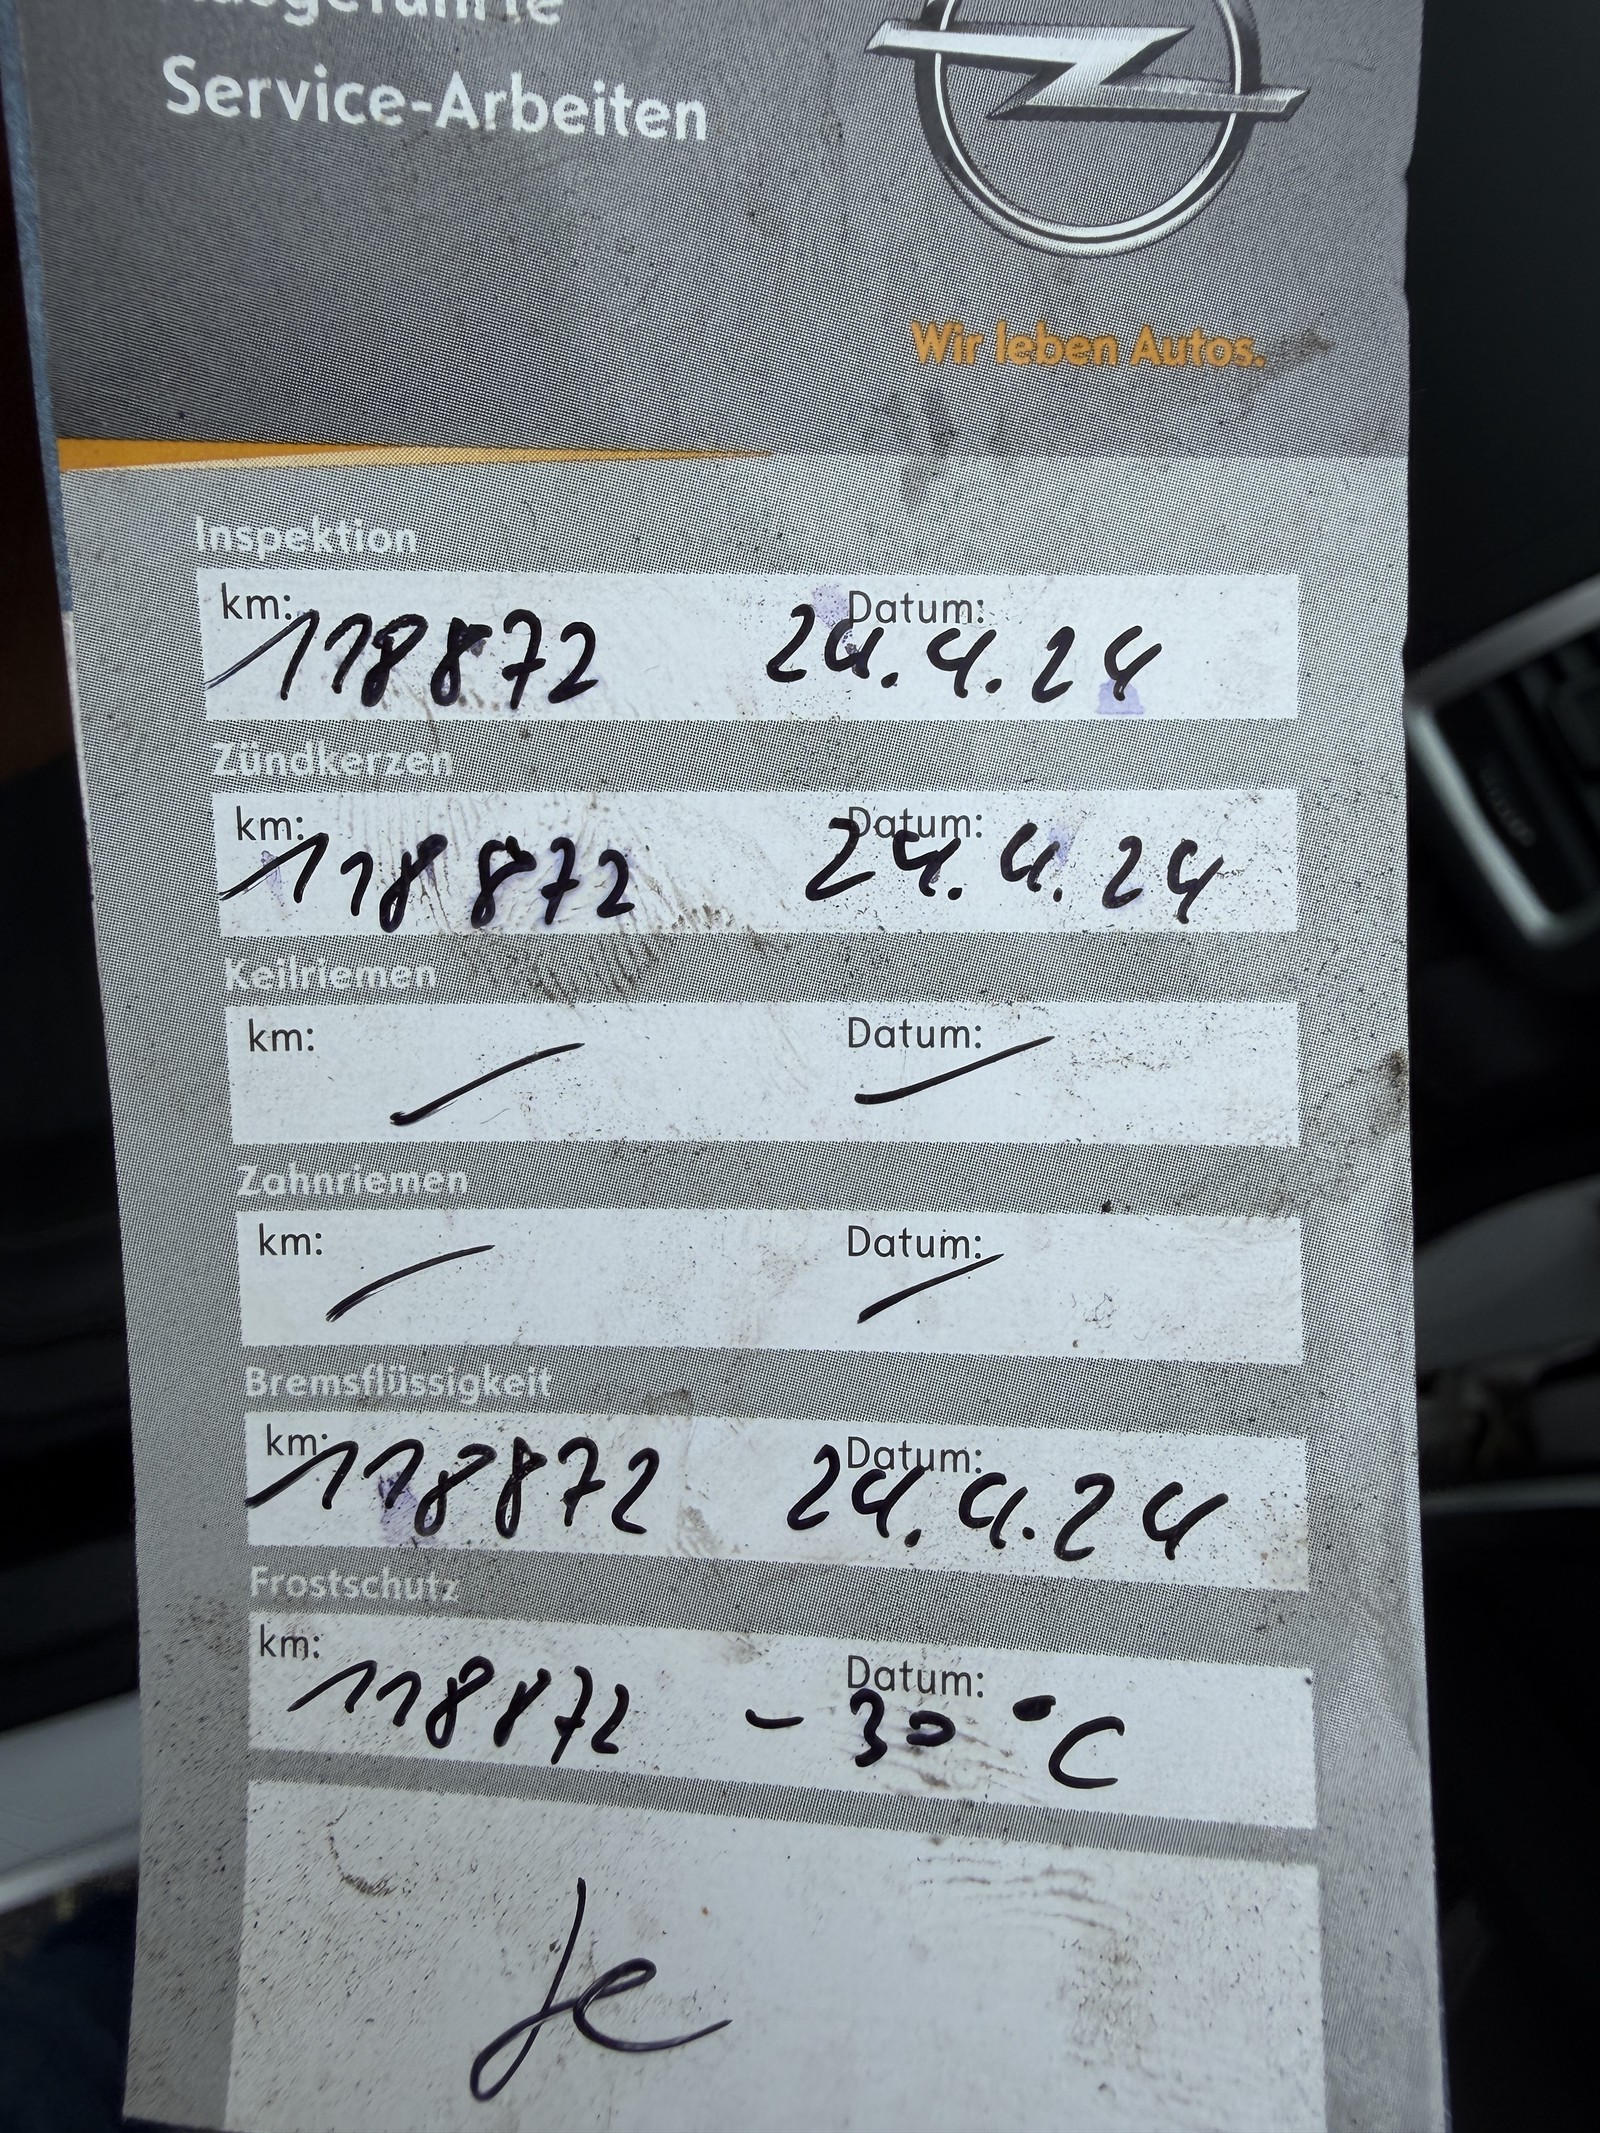 Ausgeführte
Service-Arbeiten
Wir leben Autos.
Inspektion
km: 118872 Datum: 24.4.24
Zündkerzen
km: 118872 Datum: 24.4.24
Keilriemen
km: — Datum: —
Zahnriemen
km: — Datum: —
Bremsflüssigkeit
km: 118872 Datum: 24.4.24
Frostschutz
km: 118872 Datum: -30°C